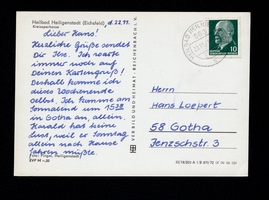 Heilbad Heiligenstadt (Eichsfeld) d. 22.11.
Kreissparkasse
Lieber Hans!
Herzliche Grüße sendet
Dir Ilse. Ich warte
immer noch auf
Deinen Kartengruß!
Deshalb komme ich
dieses Wochenende
selbst. Ich komme am
Sonnabend um 15³⁸
in Gotha an, allein.
Harald hat keine
Lust, weil er Sonntag
allein nach Hause
fahren müßte.
Foto: Pirgel, Heiligenstadt
EVP M -,20
VERBILD UND HEIMAT REICHENBACH i. V.
10
DDR
Herrn
Hans Loepert
58 Gotha
Jenzschstr. 3